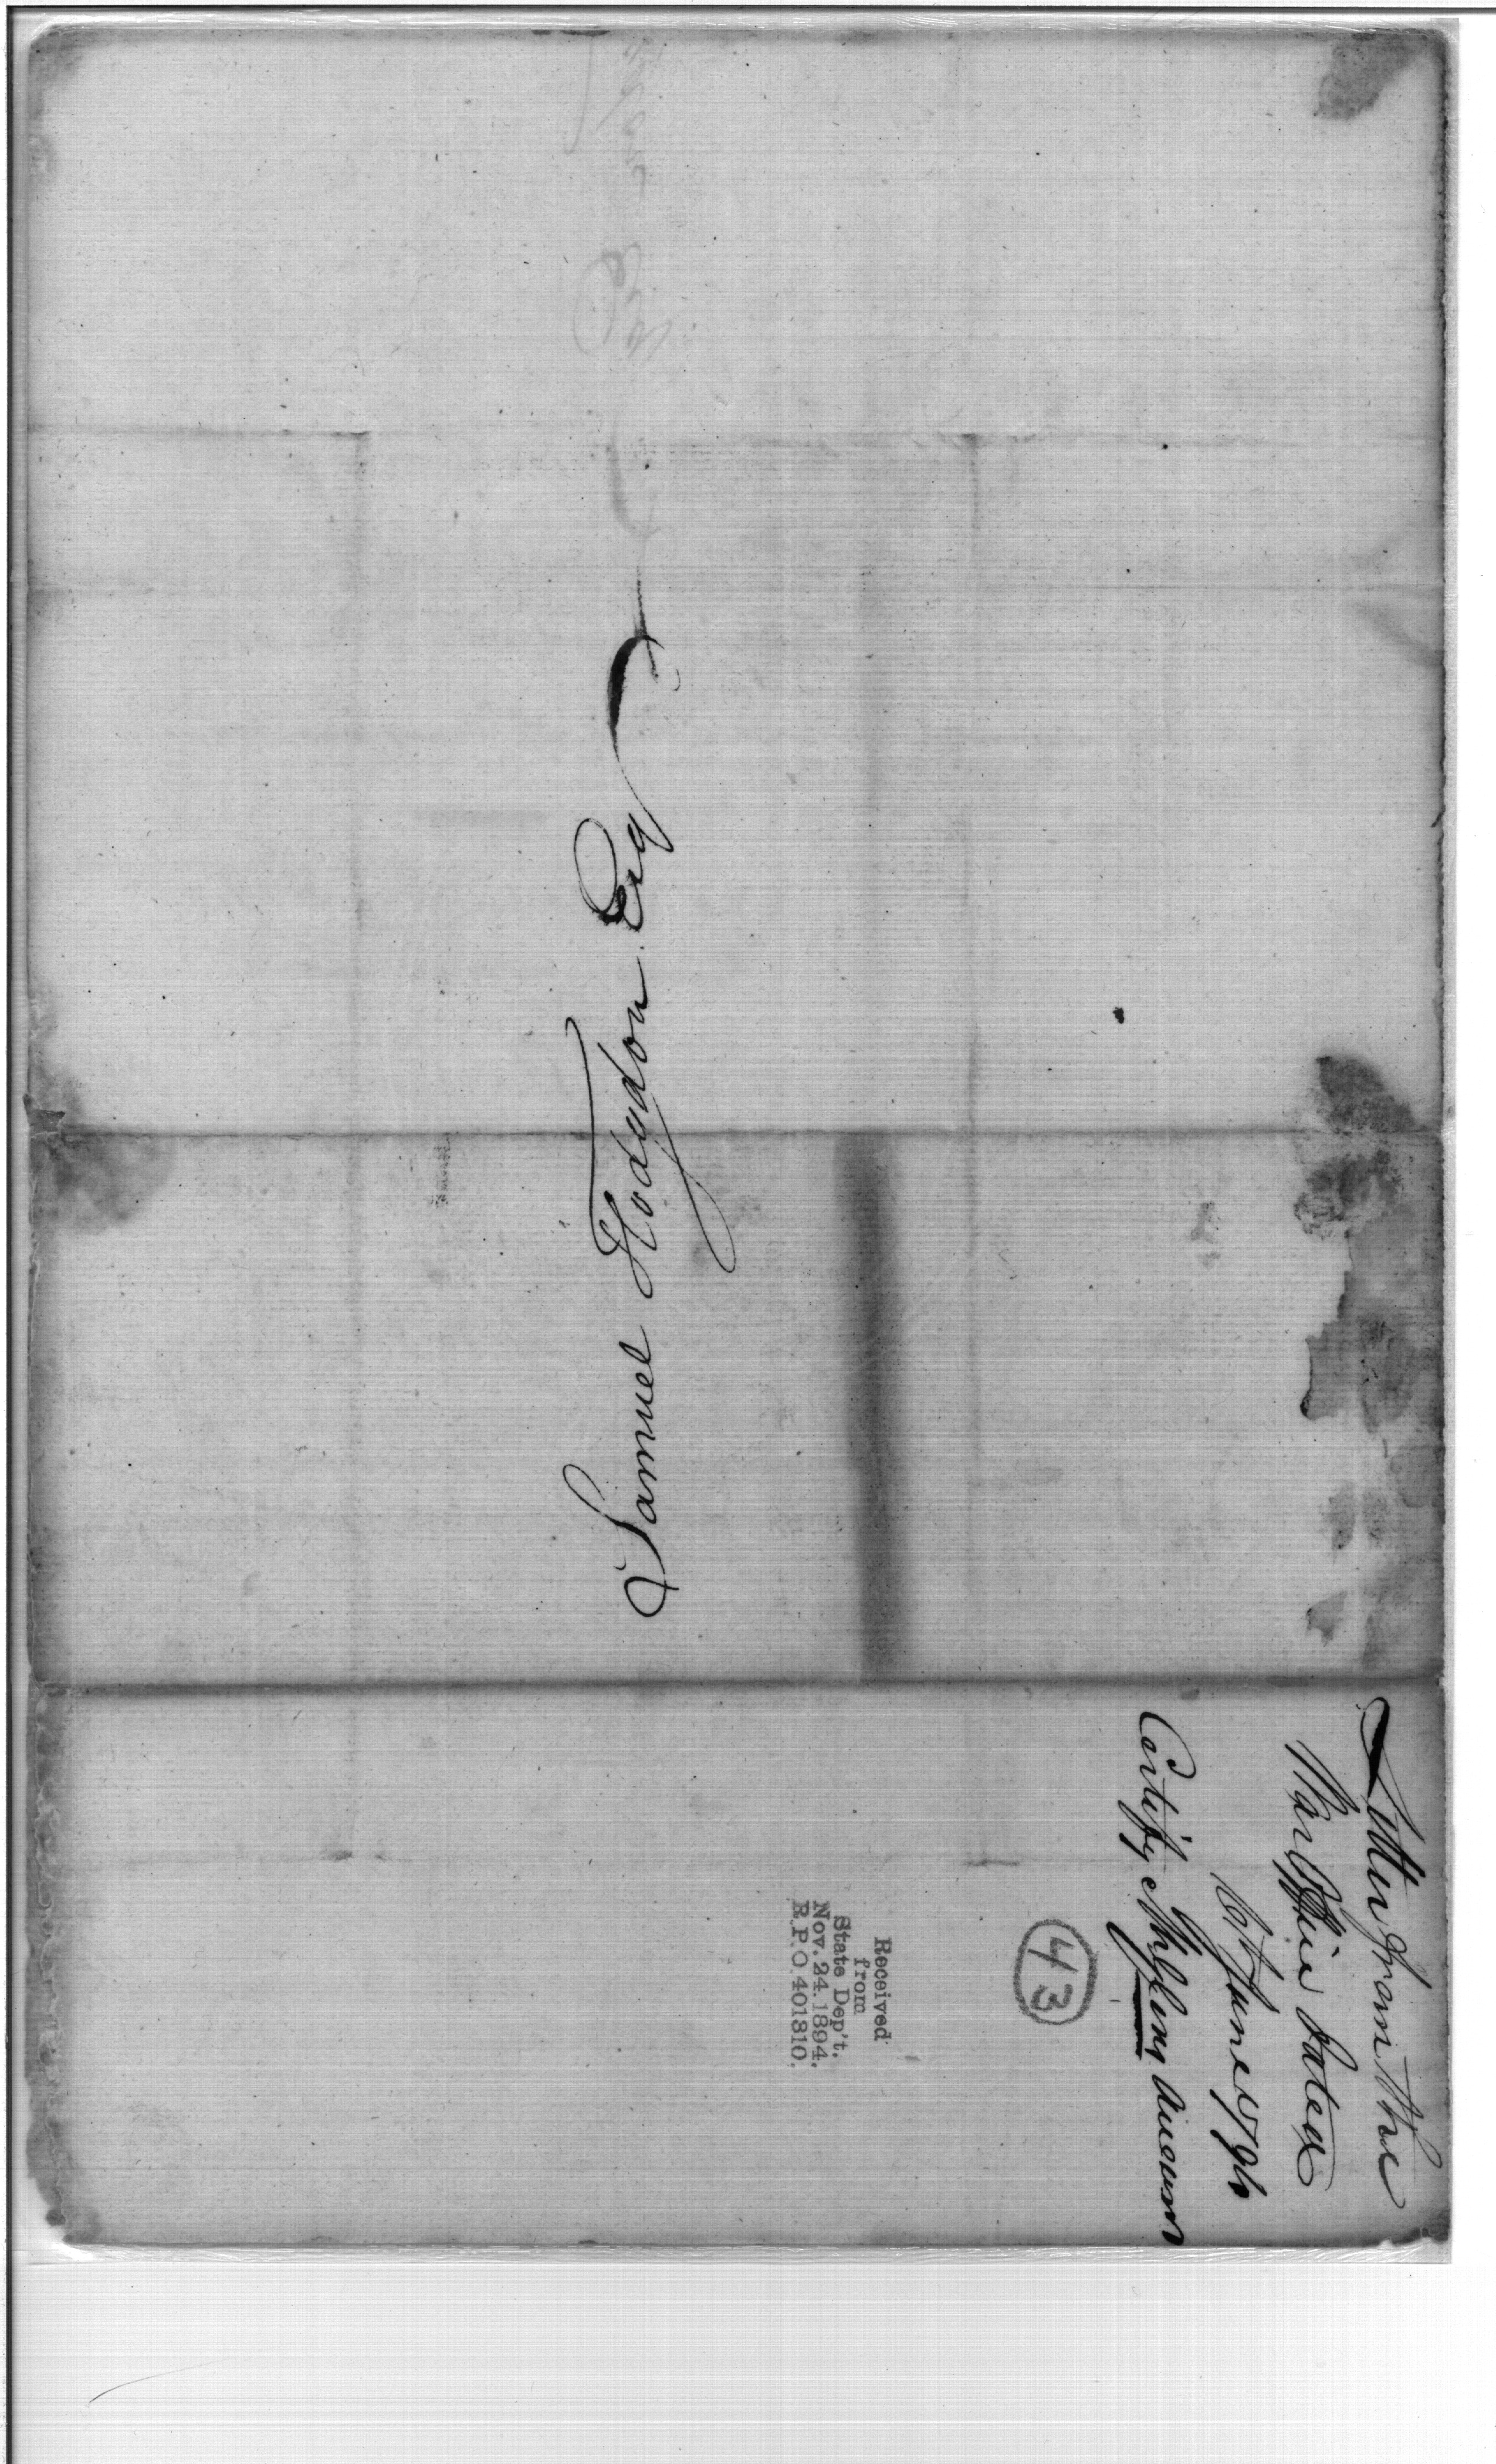 Samuel Hodgdon Esq
Letter from the
War Office dated
6th June 1796
Certify accounts
43
Received
from
State Dep't.
Nov. 24. 1894.
R.P.O. 401810.